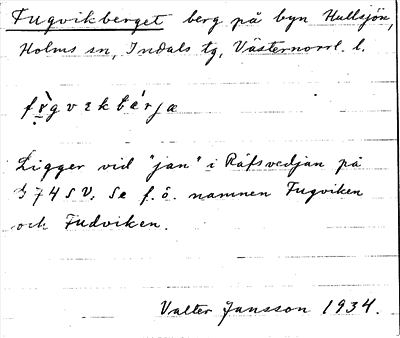 Fugvikberget berg på byn Hullsjön,
Holms sn, Indals tg, Västernorrl. l.
Ligger vid "jan" i Räfsvedjan på
374 SV. Se f. ö. namnen Fugviken
och Fudviken.
Valter Jansson 1934.